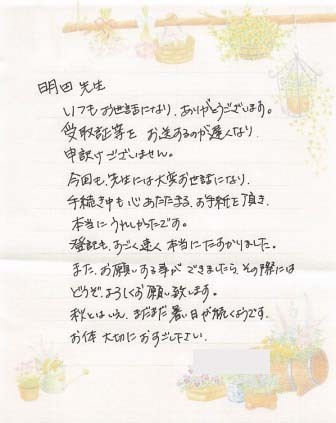 明田 先生
いつもお世話になり、ありがとうございます。
受取証等を お送するのが遅くなり、
申訳けございません。
今回も、先生には大変お世話になり、
手続き中も心あたたまる、お手紙を頂き、
本当にうれしかったです。
登記も、すごく速く 本当にたすかりました。
また、お願いする事ができましたら、その際には
どうぞ、よろしくお願い致します。
秋とはいえ、まだまだ暑い日が続くようです。
お体 大切におすごし下さい。